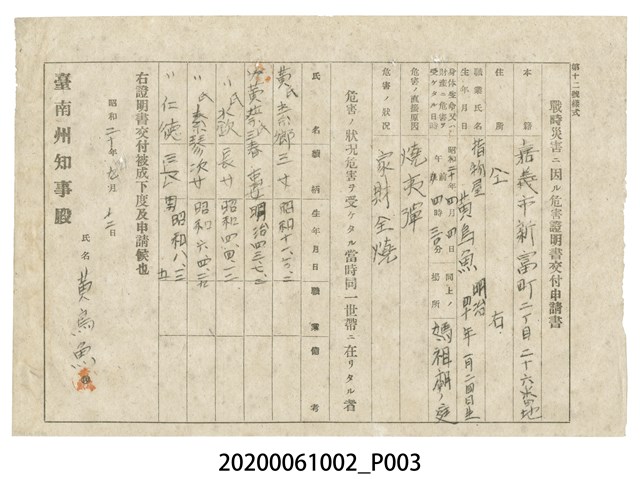 第十二號樣式
戰時災害ニ因ル危害證明書交付申請書
本籍 嘉義市新富町二丁目二十六番地
住所 仝右
職業氏名 指物屋 黃烏魚
生年月日 明治 年一月二四日生
身体生命又ハ財產ニ危害ヲ受ケタル日時 昭和二十年四月四日 午前四時三〇分 同上ノ場所 媽祖廟ノ庭
危害ノ直接原因 燒夷彈
危害ノ狀況 家財全燒
危害ノ狀況危害ヲ受ケタル當時同一世帶ニ在リタル者
氏名 續柄 生年月日 職業 備考
黃氏 三女 昭和十
黃 氏 春 妻 明治四三、七、二
〃氏 長女 昭和四、
〃氏秦琴 次女 昭和六、四、
〃仁德 長男 昭和八、三、五
右證明書交付被成下度及申請候也
昭和二十年 月十二日
氏名 黃烏魚
臺南州知事殿
20200061002_P003